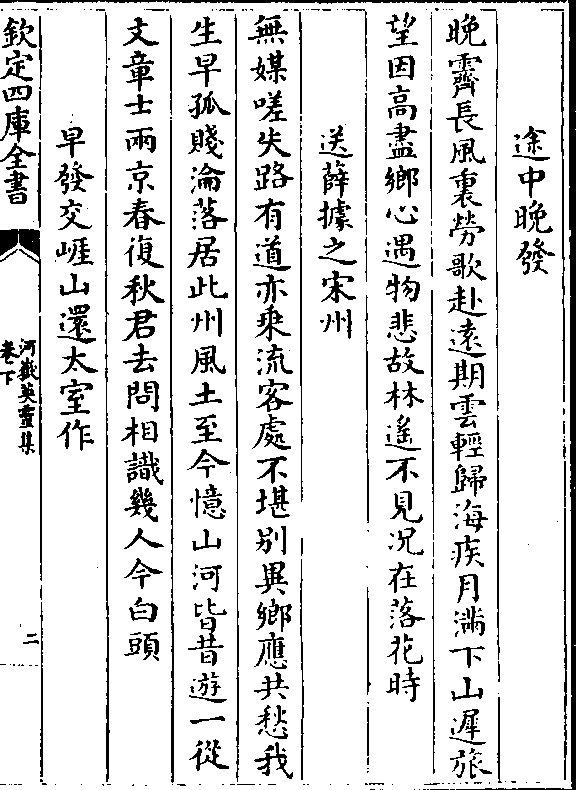 途中晚發
晚霽長風裏勞歌赴遠期雲輕歸海疾月滿下山遲旅
望因高盡鄉心遇物悲故林遙不見况在落花時
送薛據之宋州
無媒嗟失路有道亦乘流客處不堪别異鄉應共愁我
生早孤賤淪落居此州風土至今憶山河皆昔遊一從
文章士兩京春復秋君去問相識幾人今白頭
早發交崕山還太室作
欽定四庫全書
河嶽英靈集
卷下
二